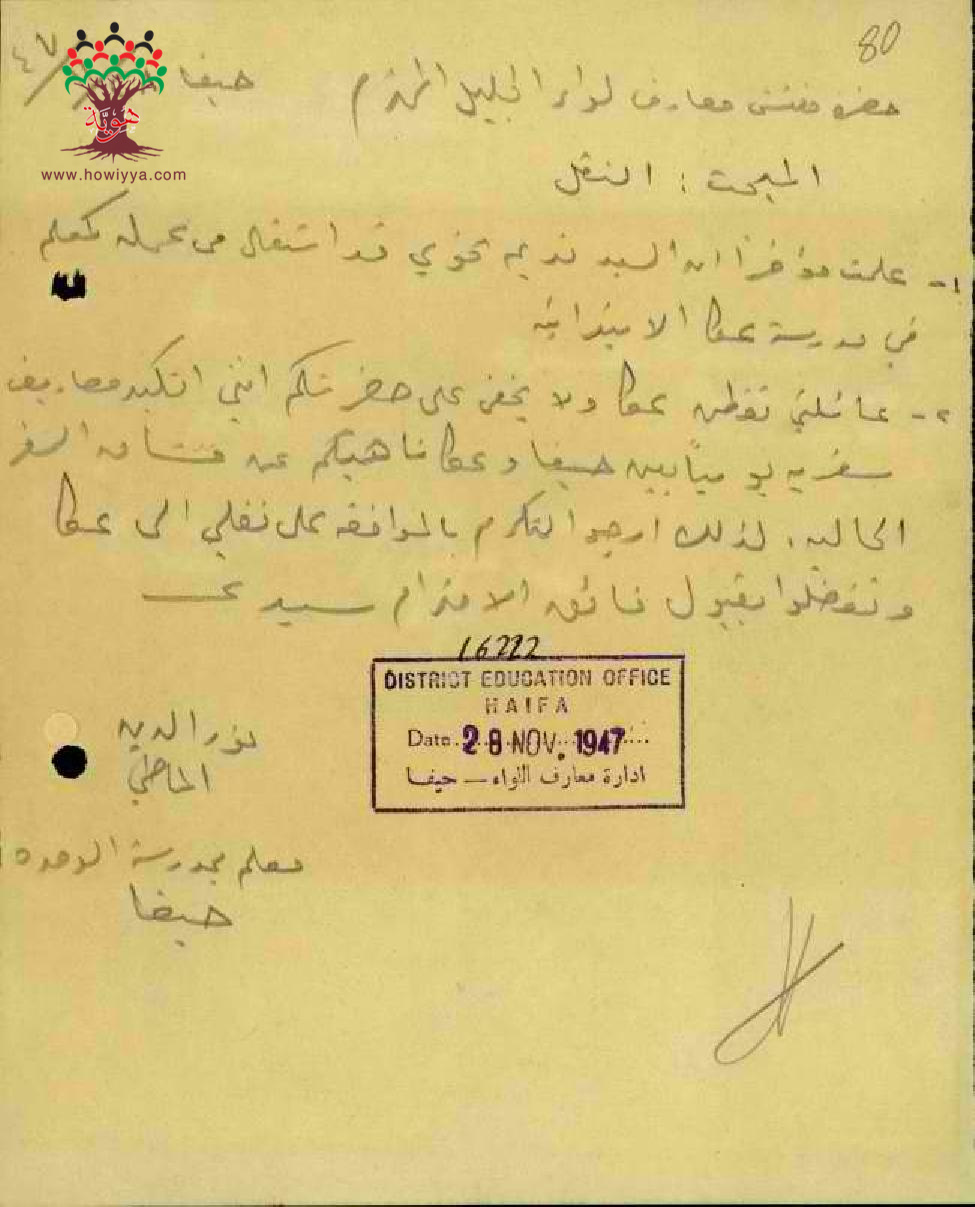 80
حيفا
٤٧
هوية
www.howiyya.com
حضرة مفتش معارف لواء الجليل المحترم
المبحث : النقل
١- علمت مؤخرا ان السيد نديم نحوي قد استقال من عمله كمعلم
في مدرسة عكا الابتدائيه
٢- عائلتي تقطن عكا ولا يخفى على حضرتكم انني اتكبد مصاريف
سفريه يوميا بين حيفا وعكا ناهيكم عن مشاق السفر
الحاليه. لذلك ارجو التكرم بالموافقه على نقلي الى عكا
وتفضلوا بقبول فائق الاحترام سيدي
16222
DISTRICT EDUCATION OFFICE
HAIFA
Date 28 NOV. 1947
ادارة معارف اللواء – حيفا
نور الدين
معلم بمدرسة الوحده
حيفا